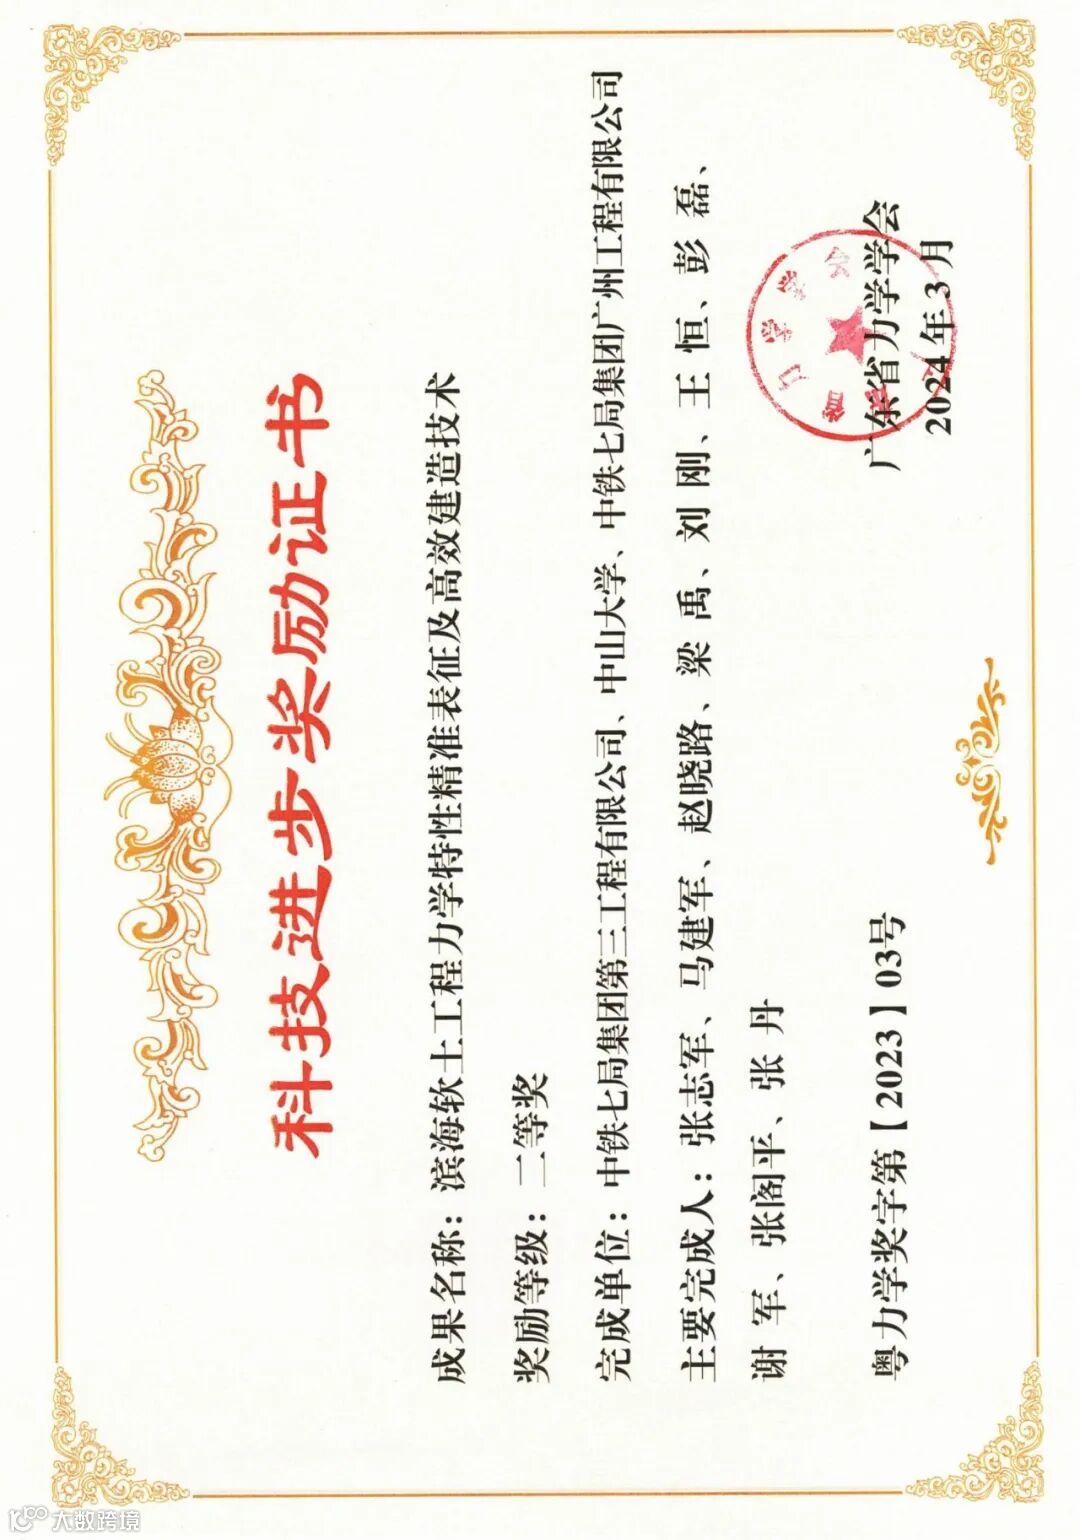 科技进步奖励证书
成果名称：滨海软土工程力学特性精准表征及高效建造技术
奖励等级：二等奖
完成单位：中铁七局集团第三工程有限公司、中山大学、中铁七局集团广州工程有限公司
主要完成人：张志军、马建军、赵晓路、梁禹、刘刚、王恒、彭磊、
谢军、张阁平、张丹
粤力学奖字第【2023】03号
广东省力学学会
2024年3月
大数跨境